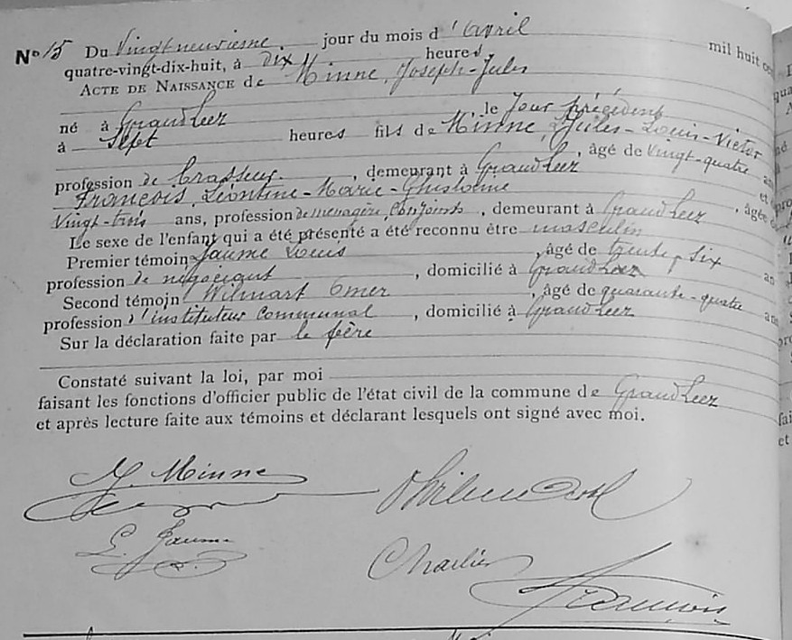 N° 15 Du Vingt neuvième jour du mois d'Avril mil huit cent
quatre-vingt-dix-huit, à dix heures.
ACTE DE NAISSANCE de Minne, Joseph-Jules
né à Grand Leez le jour précédent
à Sept heures fils de Minne, Jules-Louis-Victor
profession de brasseur, demeurant à Grand Leez, âgé de vingt-quatre ans
et François, Léontine-Marie-Ghislaine, âgée de
Vingt-trois ans, profession de ménagère, conjoints, demeurant à Grand Leez
Le sexe de l'enfant qui a été présenté a été reconnu être masculin
Premier témoin Jaume Louis, âgé de trente-six ans
profession de négociant, domicilié à Grand Leez
Second témoin Wilmart Omer, âgé de quarante-quatre ans
profession d'instituteur communal, domicilié à Grand Leez
Sur la déclaration faite par le père
Constaté suivant la loi, par moi
faisant les fonctions d'officier public de l'état civil de la commune de Grand Leez
et après lecture faite aux témoins et déclarant lesquels ont signé avec moi.
J. Minne
L. Jaume
Charlier